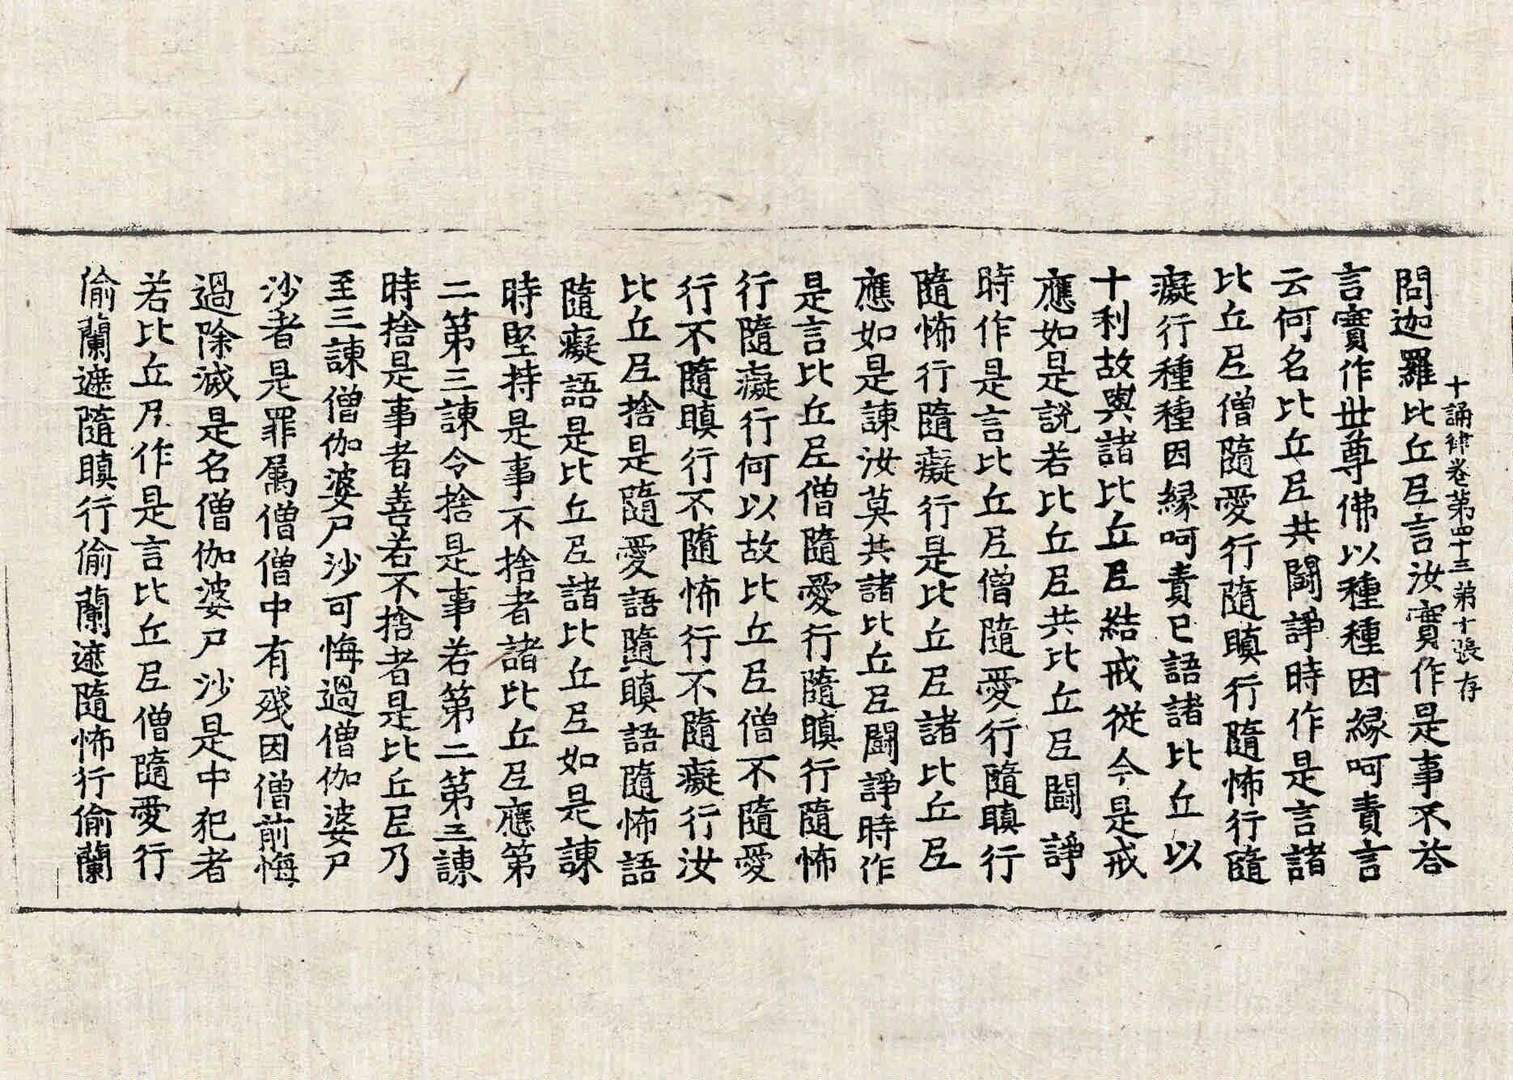 十誦律卷第四十三 第十張 存
問迦羅比丘尼言汝實作是事不荅
言實作世尊佛以種種因縁呵責言
云何名比丘尼共鬪諍時作是言諸
比丘尼僧隨愛行隨瞋行隨怖行隨
癡行種種因縁呵責已語諸比丘以
十利故與諸比丘尼結戒從今是戒
應如是說若比丘尼共比丘尼鬪諍
時作是言比丘尼僧隨愛行隨瞋行
隨怖行隨癡行是比丘尼諸比丘尼
應如是諫汝莫共諸比丘尼鬪諍時作
是言比丘尼僧隨愛行隨瞋行隨怖
行隨癡行何以故比丘尼僧不隨愛
行不隨瞋行不隨怖行不隨癡行汝
比丘尼捨是隨愛語隨瞋語隨怖語
隨癡語是比丘尼諸比丘尼如是諫
時堅持是事不捨者諸比丘尼應第
二第三諫令捨是事若第二第三諫
時捨是事者善若不捨者是比丘尼乃
至三諫僧伽婆尸沙可悔過僧伽婆尸
沙者是罪属僧僧中有殘因僧前悔
過除滅是名僧伽婆尸沙是中犯者
若比丘尼作是言比丘尼僧隨愛行
偷蘭遮隨瞋行偷蘭遮隨怖行偷蘭